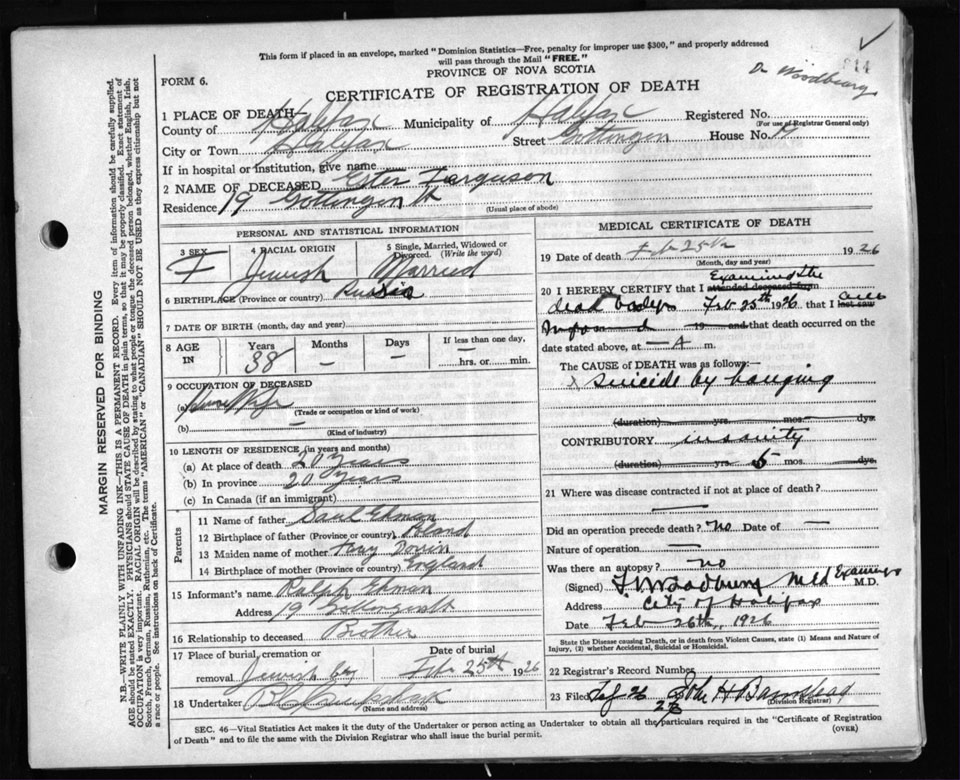 This form if placed in an envelope, marked "Dominion Statistics—Free, penalty for improper use $300," and properly addressed
will pass through the Mail "FREE."
PROVINCE OF NOVA SCOTIA
FORM 6.
CERTIFICATE OF REGISTRATION OF DEATH
Dr Woodbury
1 PLACE OF DEATH
County of Halifax Municipality of Halifax Registered No.
(For use of Registrar General only)
City or Town Halifax Street Gottingen House No. 19
If in hospital or institution, give name
2 NAME OF DECEASED Ester Farguson
Residence 19 Gottingen St
(Usual place of abode)
PERSONAL AND STATISTICAL INFORMATION
3 SEX F
4 RACIAL ORIGIN Jewish
5 Single, Married, Widowed or Divorced. (Write the word) Married
6 BIRTHPLACE (Province or country) Russia
7 DATE OF BIRTH (month, day and year)
8 AGE IN Years 38 Months — Days — If less than one day, — hrs. or min.
9 OCCUPATION OF DECEASED
(a) House Wife
(Trade or occupation or kind of work)
(b) —
(Kind of industry)
10 LENGTH OF RESIDENCE (in years and months)
(a) At place of death 20 years
(b) In province 20 years
(c) In Canada (if an immigrant)
Parents
11 Name of father Saul Ehman
12 Birthplace of father (Province or country) Poland
13 Maiden name of mother
14 Birthplace of mother (Province or country) England
15 Informant's name Ralph Ehman
Address 19 Gottingen St
16 Relationship to deceased Brother
17 Place of burial, cremation or removal Jewish Cty
Date of burial Feb 25th 1926
18 Undertaker
(Name and address)
MEDICAL CERTIFICATE OF DEATH
19 Date of death Feb 25th 1926
(Month, day and year)
20 I HEREBY CERTIFY that I attended deceased from Examined the
dead body Feb 25th 1926 that I last saw
19 and that death occurred on the
date stated above, at — A m.
The CAUSE OF DEATH was as follows:—
Suicide by hanging
(duration) yrs. mos. dys.
CONTRIBUTORY insanity
(duration) yrs. 5 mos. dys.
21 Where was disease contracted if not at place of death?
—
Did an operation precede death? no Date of —
Nature of operation —
Was there an autopsy? no
(Signed) Woodbury Med Examiner M.D.
Address City of Halifax
Date Feb 26th, 1926
State the Disease causing Death, or in death from Violent Causes, state (1) Means and Nature of
Injury, (2) whether Accidental, Suicidal or Homicidal.
22 Registrar's Record Number
23 Filed 26 John H Barnstead
(Division Registrar)
SEC. 46—Vital Statistics Act makes it the duty of the Undertaker or person acting as Undertaker to obtain all the particulars required in the "Certificate of Registration
of Death" and to file the same with the Division Registrar who shall issue the burial permit.
(OVER)
MARGIN RESERVED FOR BINDING
N.B.—WRITE PLAINLY WITH UNFADING INK—THIS IS A PERMANENT RECORD. Every item of information should be carefully supplied.
AGE should be stated EXACTLY. PHYSICIANS should STATE CAUSE OF DEATH in plain terms, so that it may be properly classified. Exact statement of
OCCUPATION is very important. RACIAL ORIGIN will be described by stating to what people or tongue the deceased person belonged, whether English, Irish,
Scotch, French, German, Russian, Ruthenian, etc. The terms "AMERICAN" or "CANADIAN" SHOULD NOT BE USED as they express citizenship but not
a race or people. See instructions on back of Certificate.